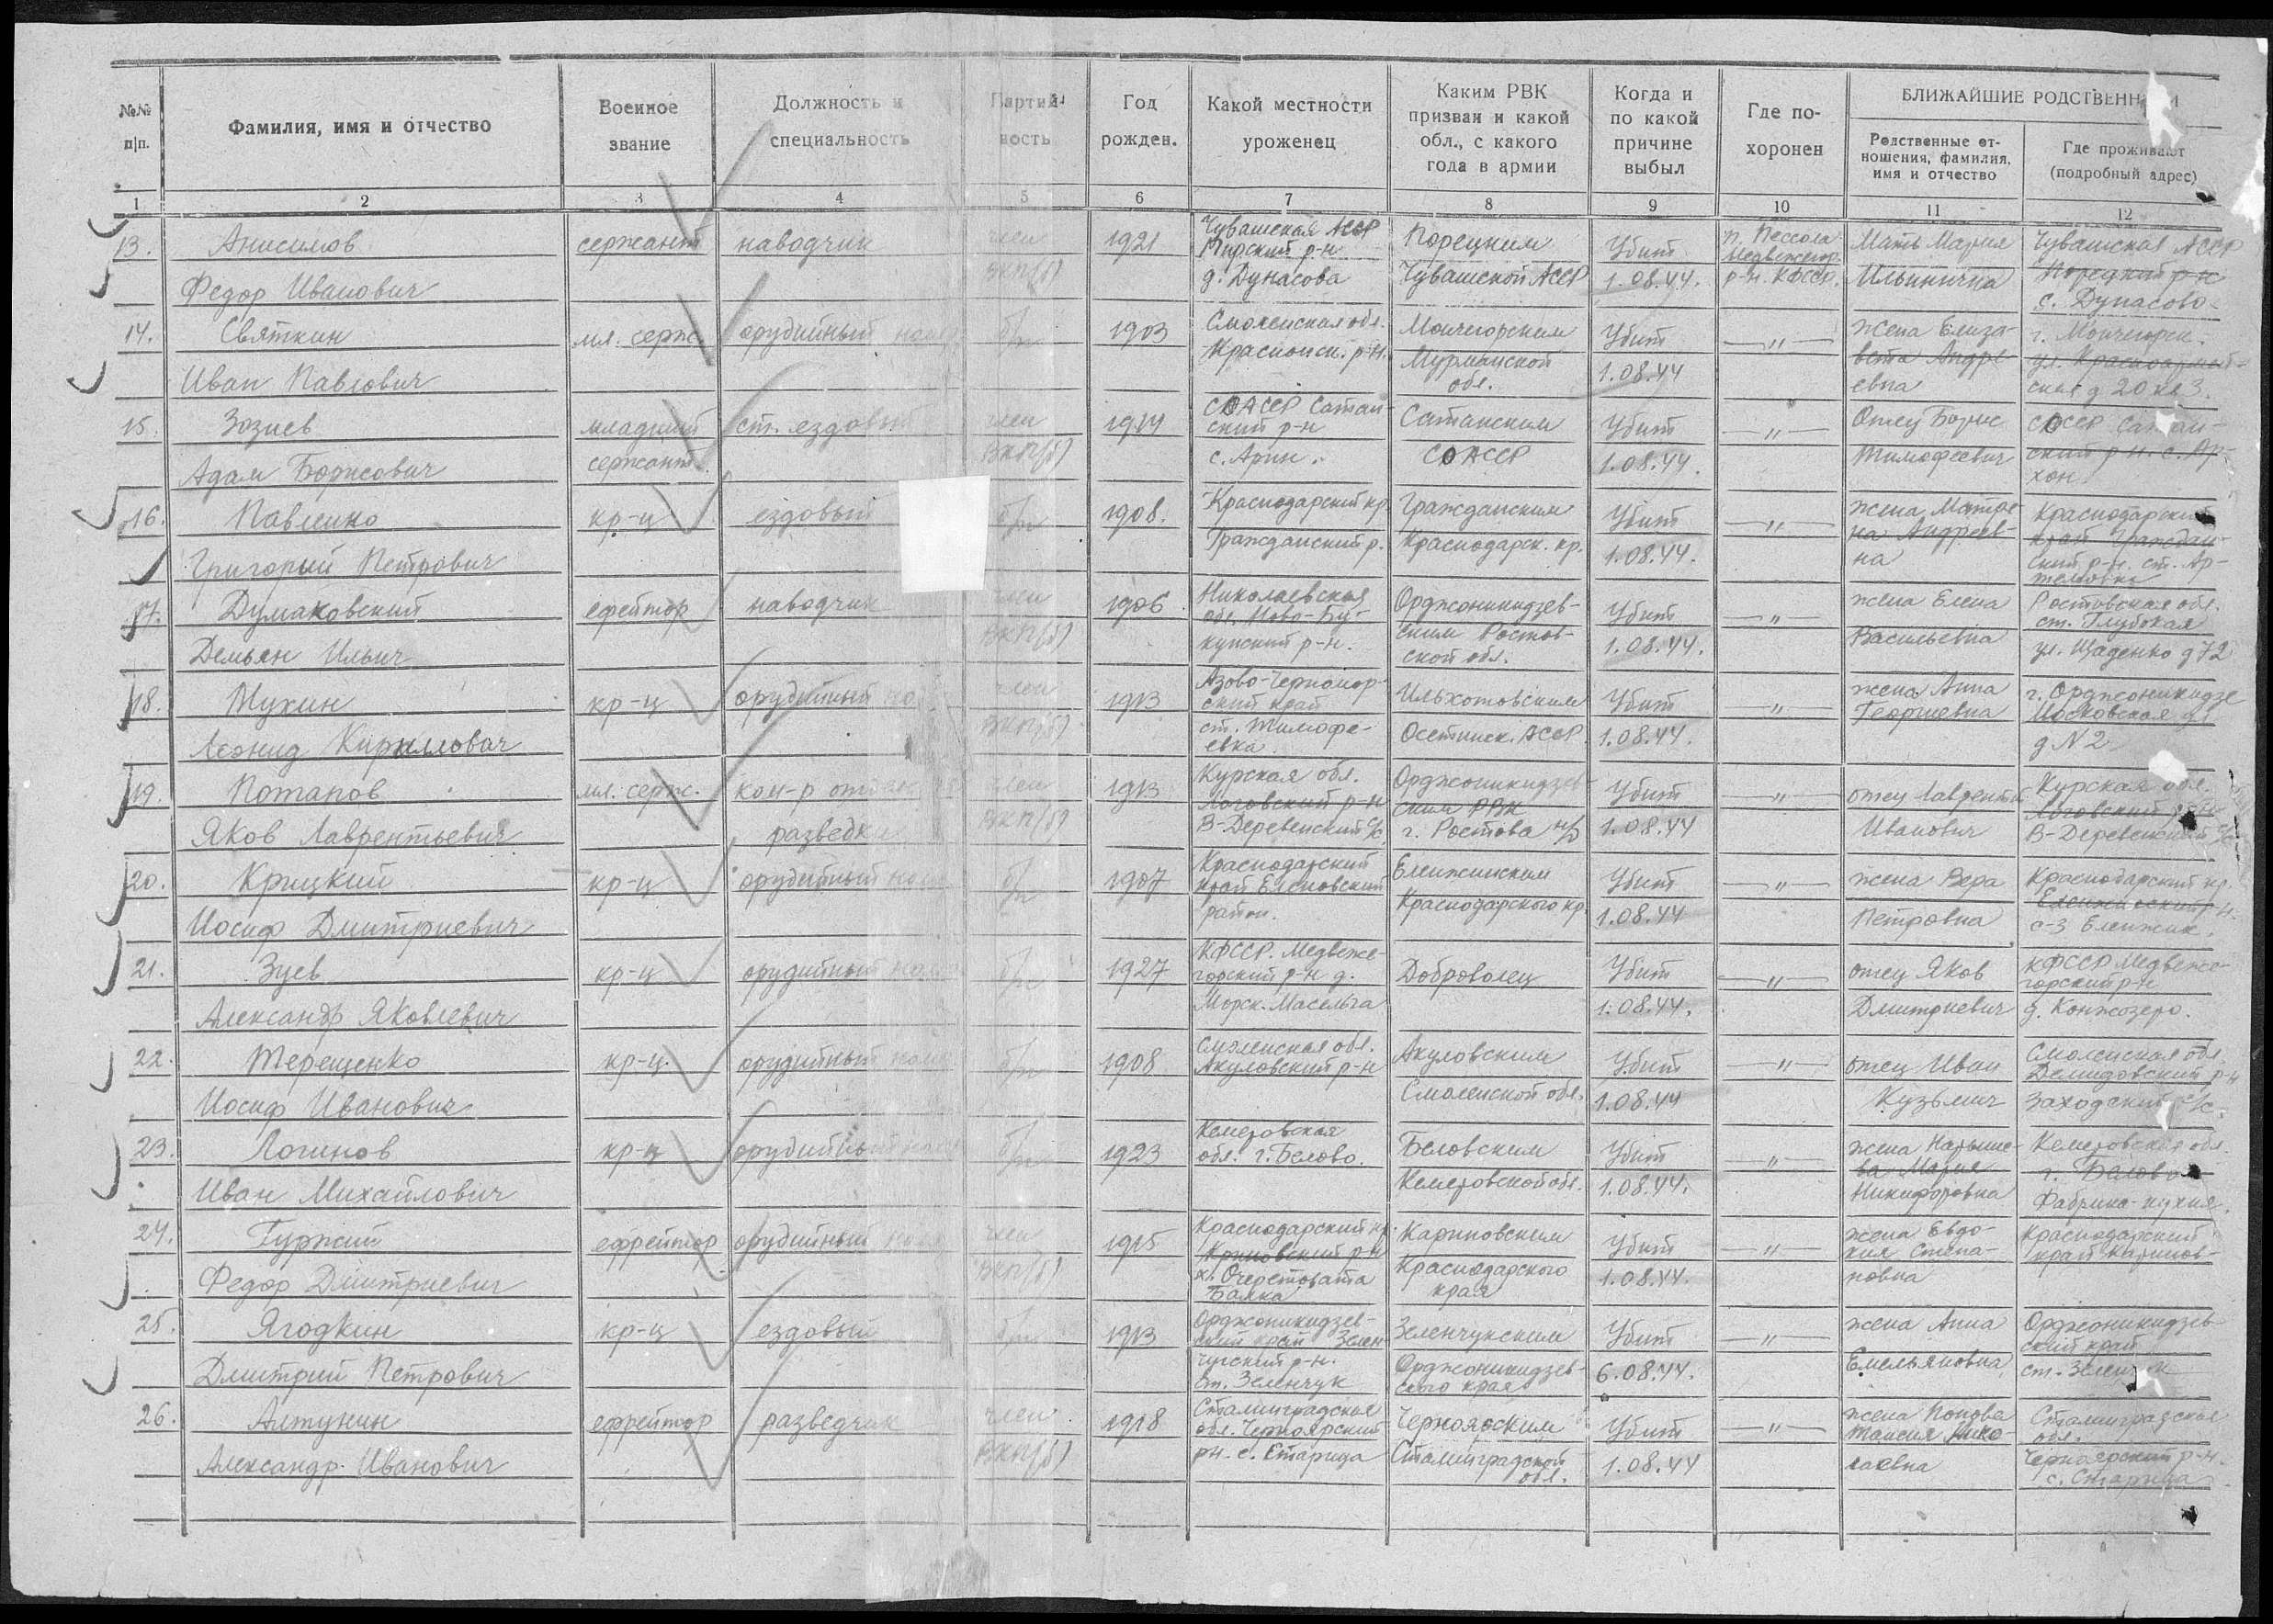 №№ п|п.
Фамилия, имя и отчество
Военное звание
Должность и специальность
Партий- ность
Год рожден.
Какой местности уроженец
Каким РВК призван и какой обл., с какого года в армии
Когда и по какой причине выбыл
Где по- хоронен
БЛИЖАЙШИЕ РОДСТВЕНН
Родственные от- ношения, фамилия, имя и отчество
Где проживают (подробный адрес)
1 2 3 4 5 6 7 8 9 10 11 12
13. Анисимов сержант наводчик член 1921 Чувашская АССР Порецким Убит Мать Мария Чувашская АССР
Федор Иванович ВКП(б) д. Дунасова Чувашской АССР 1.08.44. р-н. КФССР. Ильинична Порецкий р-н
с. Дунасово
14. Святкин мл. серж. орудийный б/п 1903 Смоленская обл. Мончегорским Убит —„— жена Елиза- г. Мончегорск.
Иван Павлович Краснинск. р-н. Мурманской обл. 1.08.44 вета Андре- евна ул. Красноармей- ская д 20 кв 3.
15. Зозиев младший ст. ездовый член 1914 СОАССР Сатан- ский р-н Сатанским Убит —„— Отец Борис
Адам Борисович сержант. ВКП(б) с. Арин. СОАССР 1.08.44. Тимофеевич ский р-н. с. Ар- хон
16. Павленко кр-ц ездовый б/п 1908. Краснодарский кр. Гражданским Убит —„— жена Матре- Краснодарский
Григорий Петрович Гражданский р. Краснодарск. кр. 1.08.44. на Андреев- на край Граждан- ский р-н. ст. Ар- темовка
17. Думаковский ефейтор наводчик член 1906 Николаевская Орджоникидзев- Убит —„— жена Елена Ростовская обл. ст. Глубокая
Демьян Ильич ВКП(б) обл. Ново-Бу- купский р-н. ским Ростов- ской обл. 1.08.44. Васильевна ул. Щаденко д 72
18. Мухин кр-ц орудийный член 1913 Азово-Черномор- ский край Ильхотовским Убит —„— жена Анна г. Орджоникидзе
Леонид Кириллович ВКП(б) ст. Тимофе- евка Осетинск. АССР. 1.08.44. Георгиевна Московская ул д N 2
19. Потапов мл. серж. ком-р член 1913 Курская обл. Орджоникидзев- Убит —„— отец Лаврентий Курская обл.
Яков Лаврентьевич разведки ВКП(б) Логовский р-н В-Деревенский с/с. ским РВК г. Ростова н/Д 1.08.44 Иванович Логовский р-н В-Деревенский с/с
20. Крицкий кр-ц орудийный б/п 1907 Краснодарский Еленжинским Убит —„— жена Вера Краснодарский кр.
Иосиф Дмитриевич край район. Краснодарского кр. 1.08.44 Петровна с-з Еленжик.
21. Зуев кр-ц орудийный б/п 1927 КФССР. Медвеже- Доброволец Убит —„— отец Яков КФССР Медвеже-
Александр Яковлевич горский р-н д. Морск. Масельга 1.08.44. Дмитриевич горский р-н д. Конжозеро.
22. Терещенко кр-ц. орудийный б/п 1908 Смоленская обл. Акуловским Убит —„— отец Иван Смоленская обл.
Иосиф Иванович Акуловский р-н Смоленской обл. 1.08.44 Кузьмич Демидовский р-н Заходский с/с.
23. Логинов кр-ц орудийный б/п 1923 Кемеровская Беловским Убит —„— жена Кемеровская обл.
Иван Михайлович обл. г. Белово. Кемеровской обл. 1.08.44. Мария Никифоровна г. Белово Фабрика-кухня.
24. Гуржий ефрейтор орудийный член 1915 Краснодарский кр. Кариновским Убит —„— жена Евдо- Краснодарский
Федор Дмитриевич ВКП(б) х. Очеретовата Балка Краснодарского края 1.08.44. кия Степа- новна край
25. Ягодкин кр-ц ездовый б/п 1913 Орджоникидзев- Зеленчукским Убит —„— жена Анна Орджоникидзев-
Дмитрий Петрович ский край Зелен- чукский р-н. ст. Зеленчук Орджоникидзев- ского края 6.08.44. Емельяновна ский край
26. Алтунин ефрейтор разведчик член 1918 Сталинградская Черноярским Убит —„— жена Попова Сталинградская обл.
Александр Иванович ВКП(б) обл. Черноярский р-н. с. Старица Сталинградской обл. 1.08.44 Таисия Нико- лаевна Черноярский р-н. с. Старица